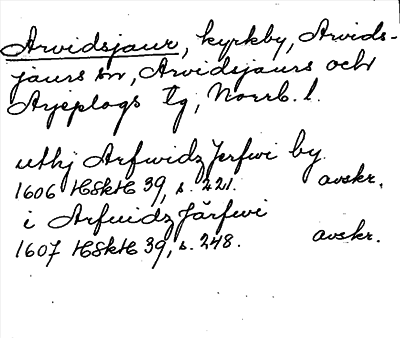 Arvidsjaur, kyrkby, Arvids-
jaurs sn, Arvidsjaurs och
Arjeplogs tg, Norrb. l.
uthj Arfwidz Jerfwi by
1606 HSkH 39, s. 221. avskr.
i Arfuidz Järfwi
1607 HSkH 39, s. 248. avskr.